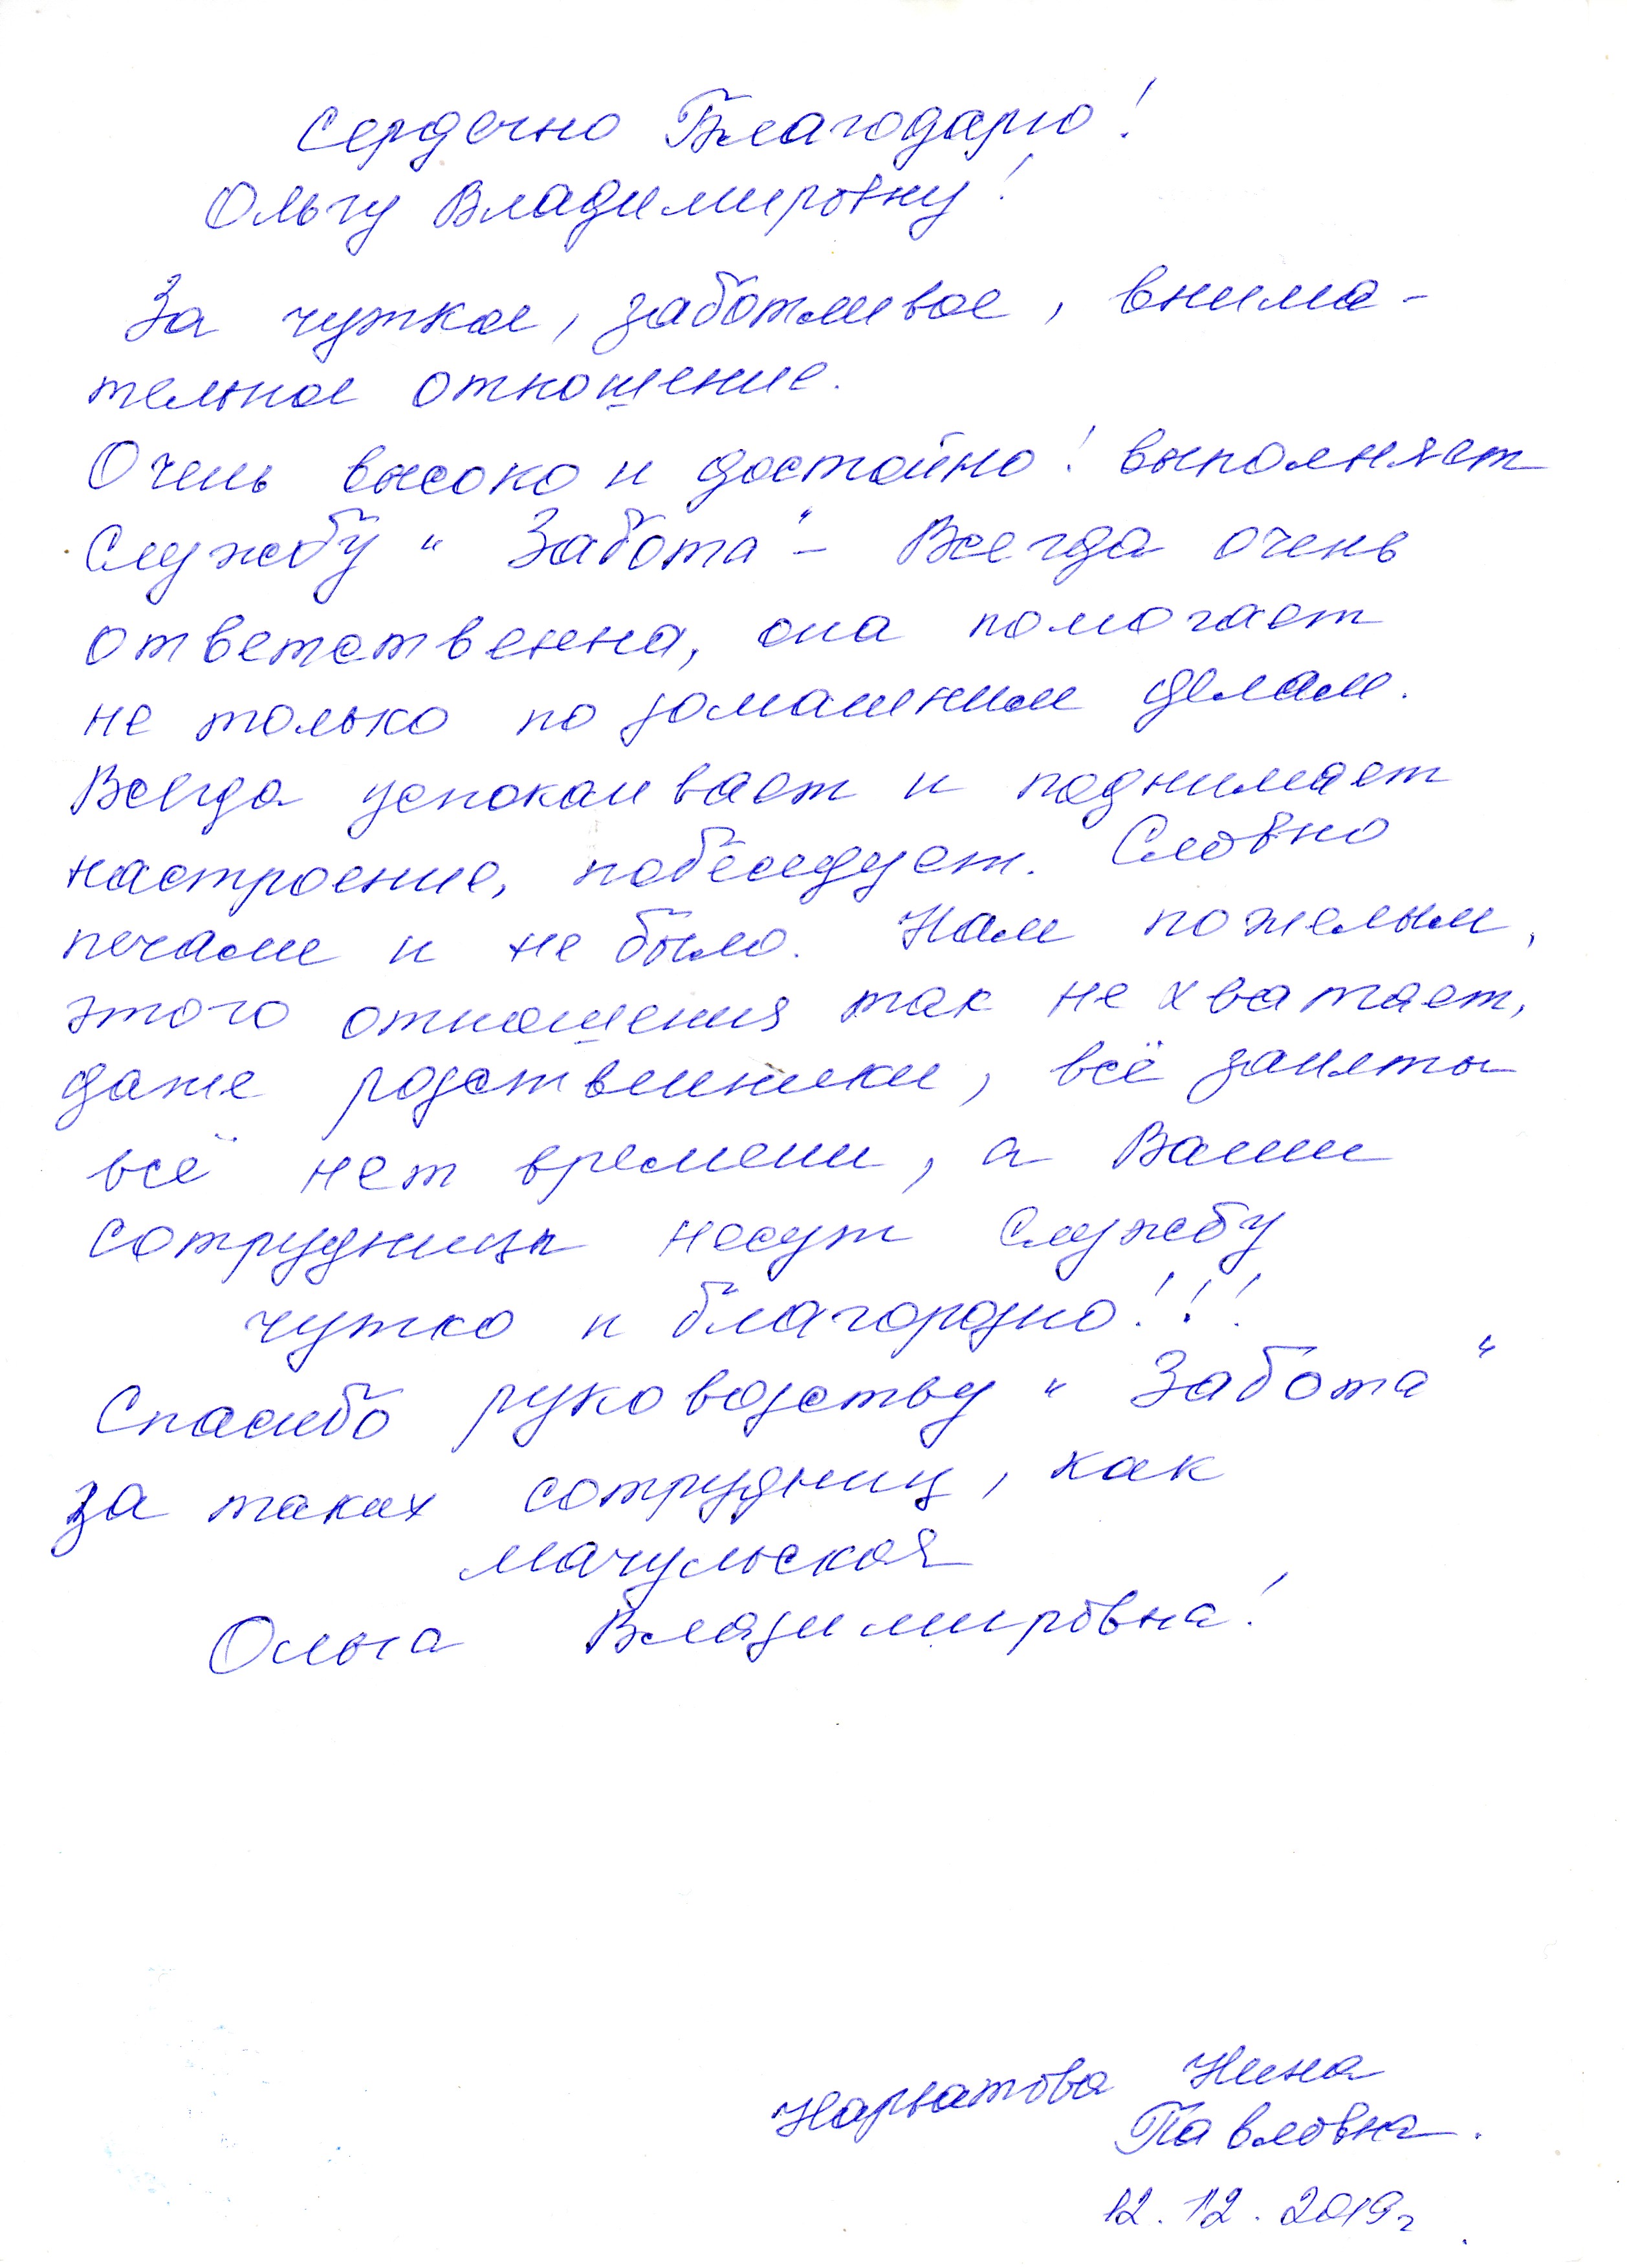 Сердечно Благодарю!
Ольгу Владимировну!
За чуткое, заботливое, внима-
тельное отношение.
Очень высоко и достойно! выполняет
Службу "Забота" - Всегда очень
ответственна, она помогает
не только по домашним делам.
Всегда успокаивает и поднимает
настроение, побеседует. Словно
печали и не было. Нам пожелым,
этого отношения так не хватает,
даже родственники, всё заняты
всё нет времени, а Ваши
сотрудницы несут Службу
чутко и благородно!!!
Спасибо руководству "Забота"
за таких сотрудниц, как
Мачульская
Ольга Владимировна!
Нина
Павловна.
12.12.2019г.